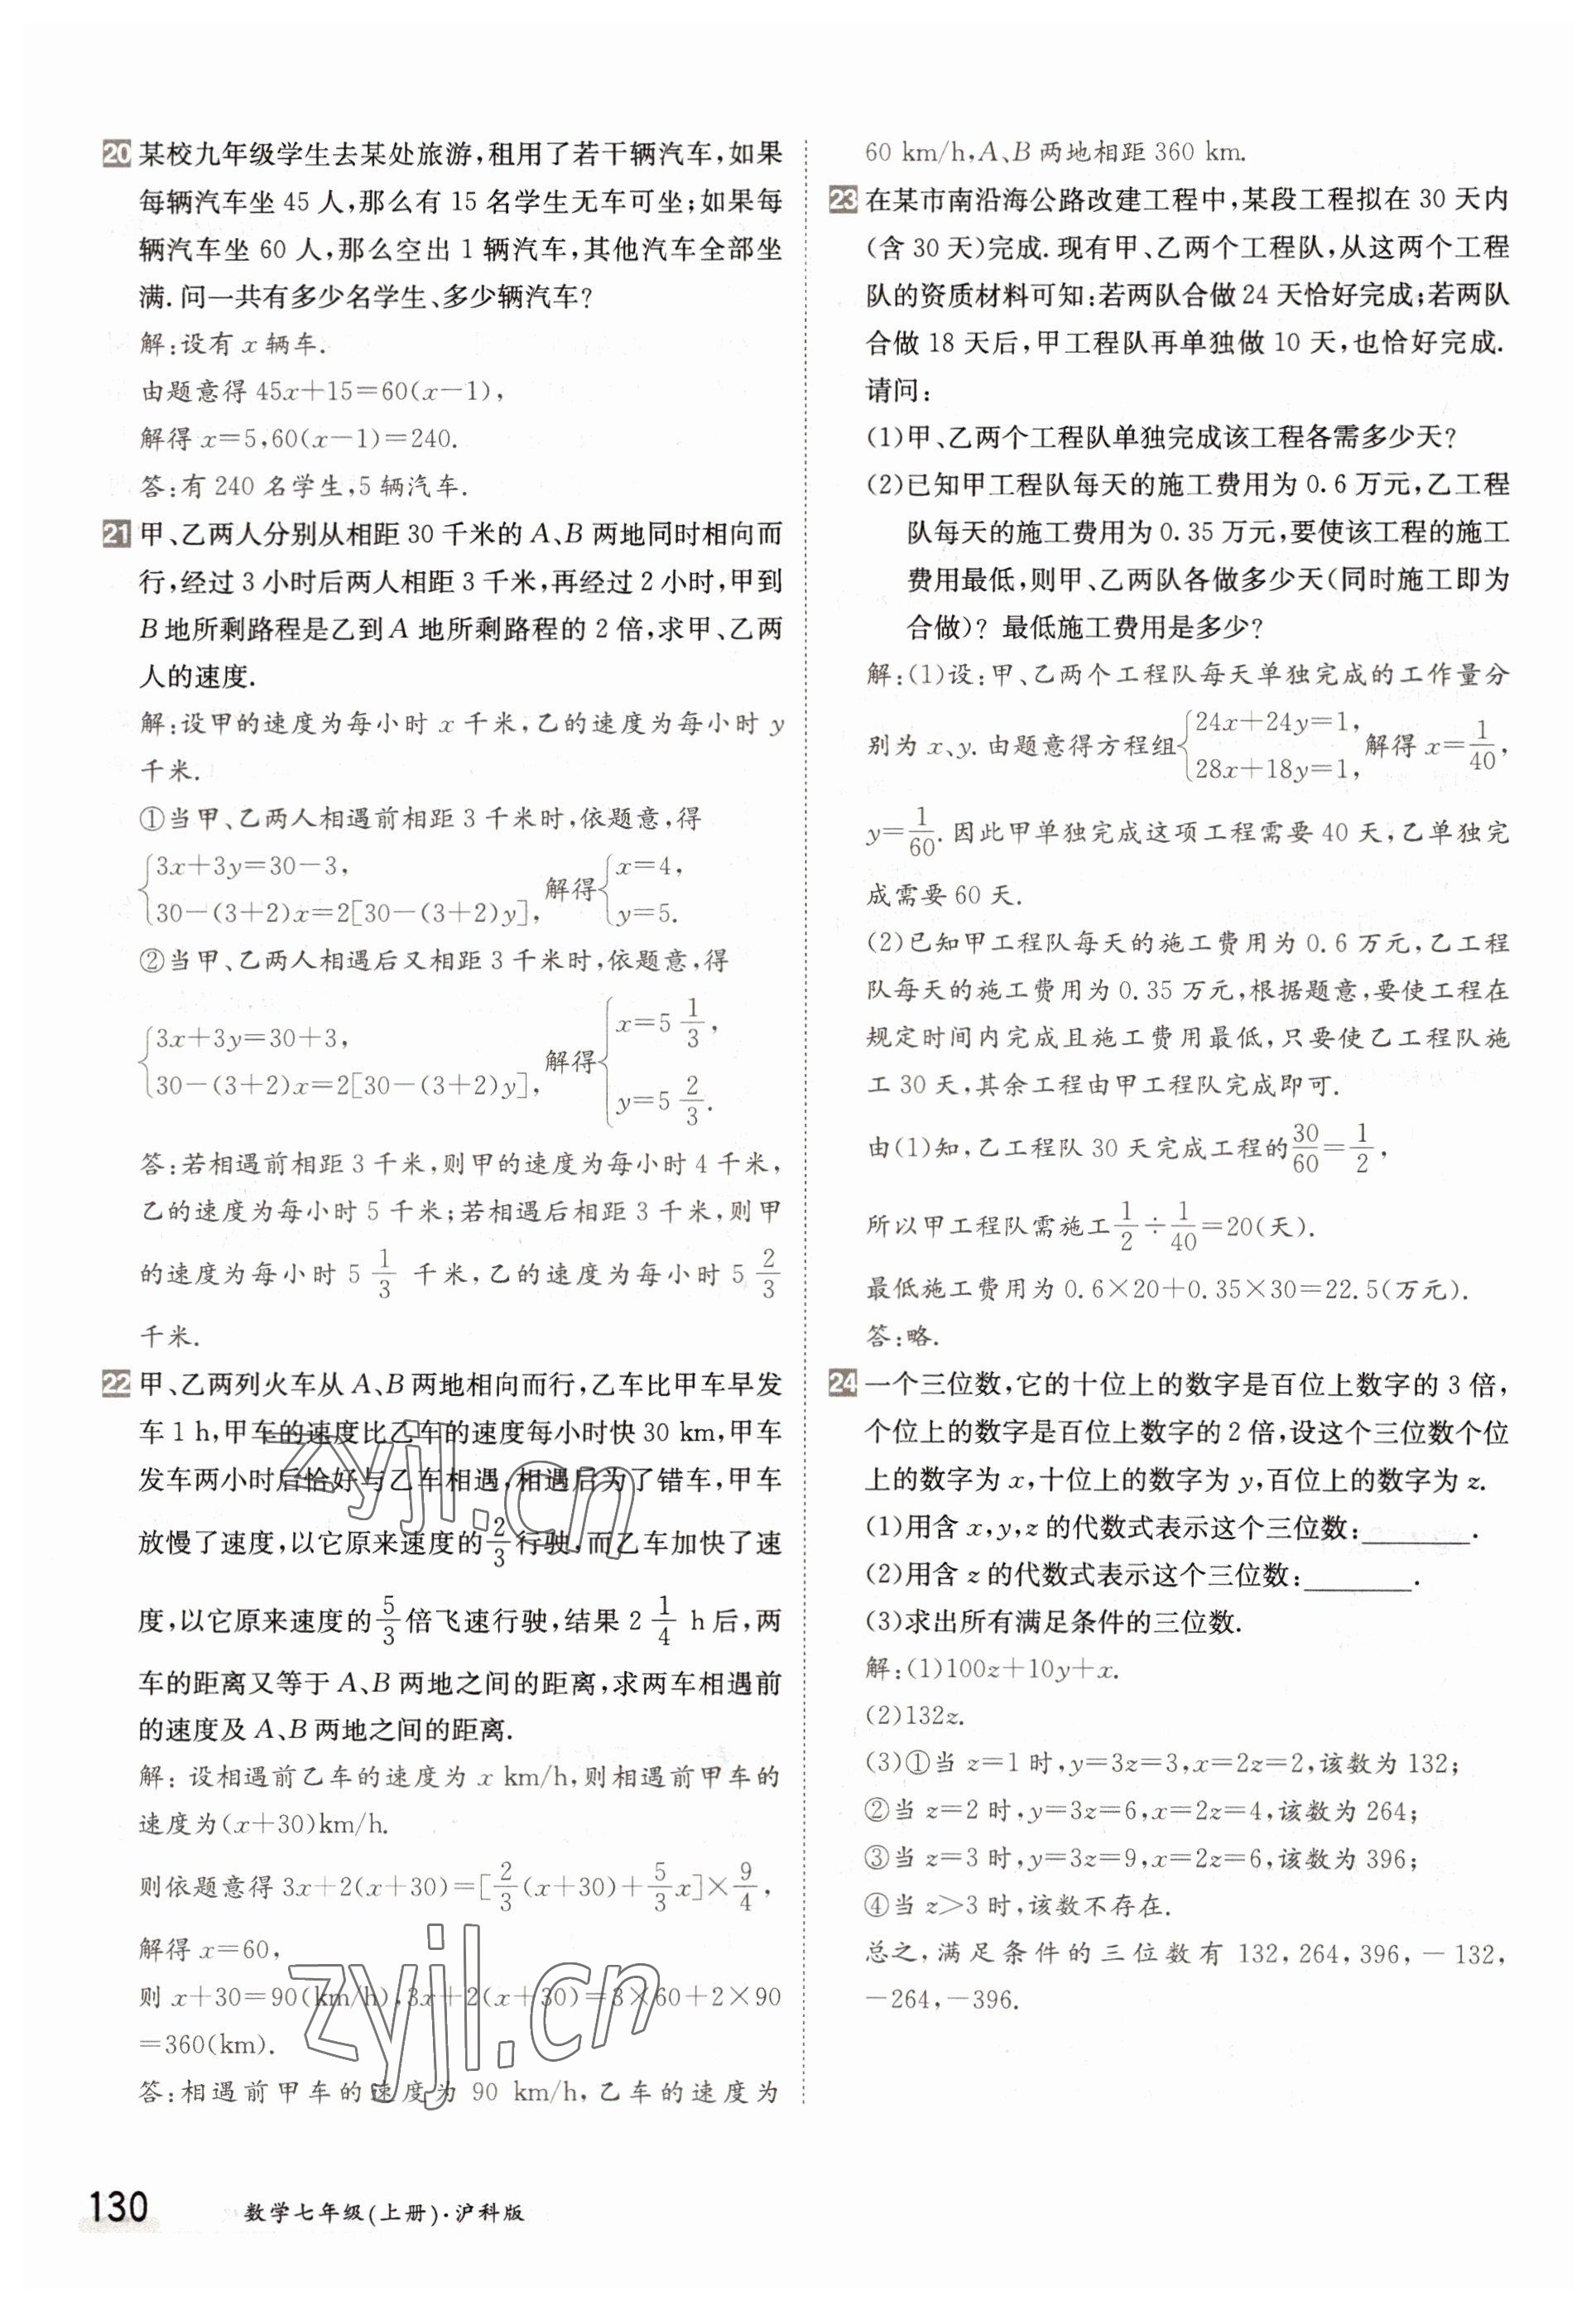 20 某校九年级学生去某处旅游,租用了若干辆汽车,如果
每辆汽车坐 45 人,那么有 15 名学生无车可坐;如果每
辆汽车坐 60 人,那么空出 1 辆汽车,其他汽车全部坐
满.问一共有多少名学生、多少辆汽车?
解:设有 x 辆车.
由题意得 45x+15=60(x-1),
解得 x=5,60(x-1)=240.
答:有 240 名学生,5 辆汽车.
21 甲、乙两人分别从相距 30 千米的 A、B 两地同时相向而
行,经过 3 小时后两人相距 3 千米,再经过 2 小时,甲到
B 地所剩路程是乙到 A 地所剩路程的 2 倍,求甲、乙两
人的速度.
解:设甲的速度为每小时 x 千米,乙的速度为每小时 y
千米.
①当甲、乙两人相遇前相距 3 千米时,依题意,得
{3x+3y=30-3, 30-(3+2)x=2[30-(3+2)y], 解得{x=4, y=5.
②当甲、乙两人相遇后又相距 3 千米时,依题意,得
{3x+3y=30+3, 30-(3+2)x=2[30-(3+2)y], 解得{x=5 1/3, y=5 2/3.
答:若相遇前相距 3 千米,则甲的速度为每小时 4 千米,
乙的速度为每小时 5 千米;若相遇后相距 3 千米,则甲
的速度为每小时 5 1/3 千米,乙的速度为每小时 5 2/3
千米.
22 甲、乙两列火车从 A、B 两地相向而行,乙车比甲车早发
车 1 h,甲车的速度比乙车的速度每小时快 30 km,甲车
发车两小时后恰好与乙车相遇,相遇后为了错车,甲车
放慢了速度,以它原来速度的 2/3 行驶,而乙车加快了速
度,以它原来速度的 5/3 倍飞速行驶,结果 2 1/4 h 后,两
车的距离又等于 A、B 两地之间的距离,求两车相遇前
的速度及 A、B 两地之间的距离.
解:设相遇前乙车的速度为 x km/h,则相遇前甲车的
速度为(x+30)km/h.
则依题意得 3x+2(x+30)=[2/3(x+30)+5/3x]×9/4,
解得 x=60,
则 x+30=90(km/h),3x+2(x+30)=3×60+2×90
=360(km).
答:相遇前甲车的速度为 90 km/h,乙车的速度为
60 km/h,A、B 两地相距 360 km.
23 在某市南沿海公路改建工程中,某段工程拟在 30 天内
(含 30 天)完成.现有甲、乙两个工程队,从这两个工程
队的资质材料可知:若两队合做 24 天恰好完成;若两队
合做 18 天后,甲工程队再单独做 10 天,也恰好完成.
请问:
(1)甲、乙两个工程队单独完成该工程各需多少天?
(2)已知甲工程队每天的施工费用为 0.6 万元,乙工程
队每天的施工费用为 0.35 万元,要使该工程的施工
费用最低,则甲、乙两队各做多少天(同时施工即为
合做)?最低施工费用是多少?
解:(1)设:甲、乙两个工程队每天单独完成的工作量分
别为 x、y.由题意得方程组{24x+24y=1, 28x+18y=1, 解得 x=1/40,
y=1/60.因此甲单独完成这项工程需要 40 天,乙单独完
成需要 60 天.
(2)已知甲工程队每天的施工费用为 0.6 万元,乙工程
队每天的施工费用为 0.35 万元,根据题意,要使工程在
规定时间内完成且施工费用最低,只要使乙工程队施
工 30 天,其余工程由甲工程队完成即可.
由(1)知,乙工程队 30 天完成工程的 30/60=1/2,
所以甲工程队需施工 1/2÷1/40=20(天).
最低施工费用为 0.6×20+0.35×30=22.5(万元).
答:略.
24 一个三位数,它的十位上的数字是百位上数字的 3 倍,
个位上的数字是百位上数字的 2 倍,设这个三位数个位
上的数字为 x,十位上的数字为 y,百位上的数字为 z.
(1)用含 x,y,z 的代数式表示这个三位数:________.
(2)用含 z 的代数式表示这个三位数:________.
(3)求出所有满足条件的三位数.
解:(1)100z+10y+x.
(2)132z.
(3)①当 z=1 时,y=3z=3,x=2z=2,该数为 132;
②当 z=2 时,y=3z=6,x=2z=4,该数为 264;
③当 z=3 时,y=3z=9,x=2z=6,该数为 396;
④当 z>3 时,该数不存在.
总之,满足条件的三位数有 132,264,396,-132,
-264,-396.
zyjl.cn
zyjl.cn
130 数学七年级(上册)·沪科版